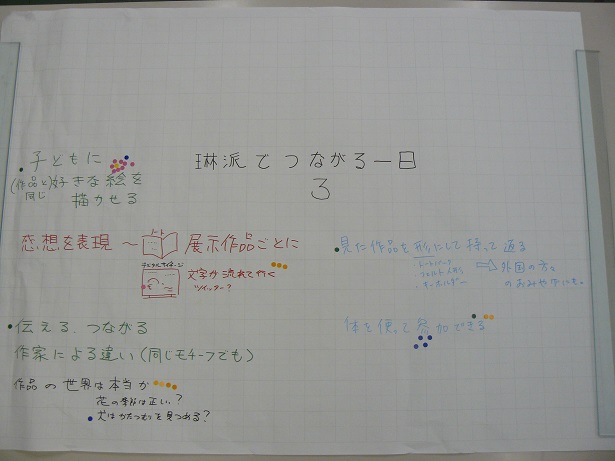 琳派でつながる一日
3
・子どもに
(作品と同じ)好きな絵を
描かせる
感想を表現〜
ノート
展示作品ごとに
デジタルサイネージ
文字が流れて行く
ツイッター?
・見た作品を形にして持って還る
・キーホルダー
⇨外国の方々
のおみやげにも。
・伝える、つながる
作家による違い(同じモチーフでも)
体を使って参加できる
作品の世界は本当か
花の季節は正しい?
犬はかたつむりを見つめる?